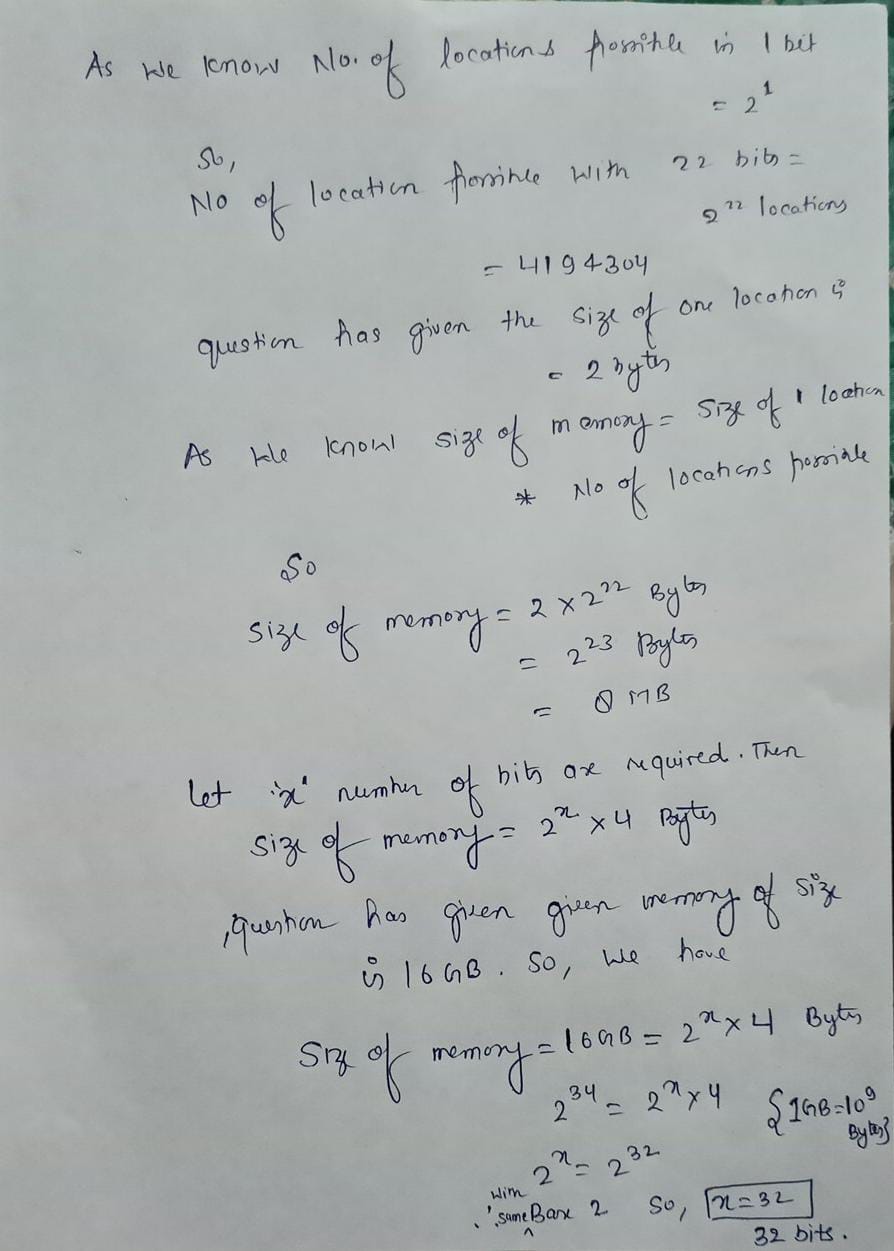 As we know No. of locations possible in 1 bit
= 2¹
So,
No of location possible with 22 bits =
2²² locations
= 4194304
question has given the size of one location is
= 2 bytes
As We know size of memory = size of 1 location
* No of locations possible
So
size of memory = 2 × 2²² Bytes
= 2²³ Bytes
= 8 MB
Let 'x' number of bits are required. Then
size of memory = 2ˣ × 4 Bytes
, question has given given memory of size
is 16 GB. So, we have
Size of memory = 16GB = 2ˣ × 4 Bytes
2³⁴ = 2ˣ × 4 {1GB = 10⁹ Bytes}
2ˣ = 2³²
∵ with same Base 2 So, x = 32
32 bits.